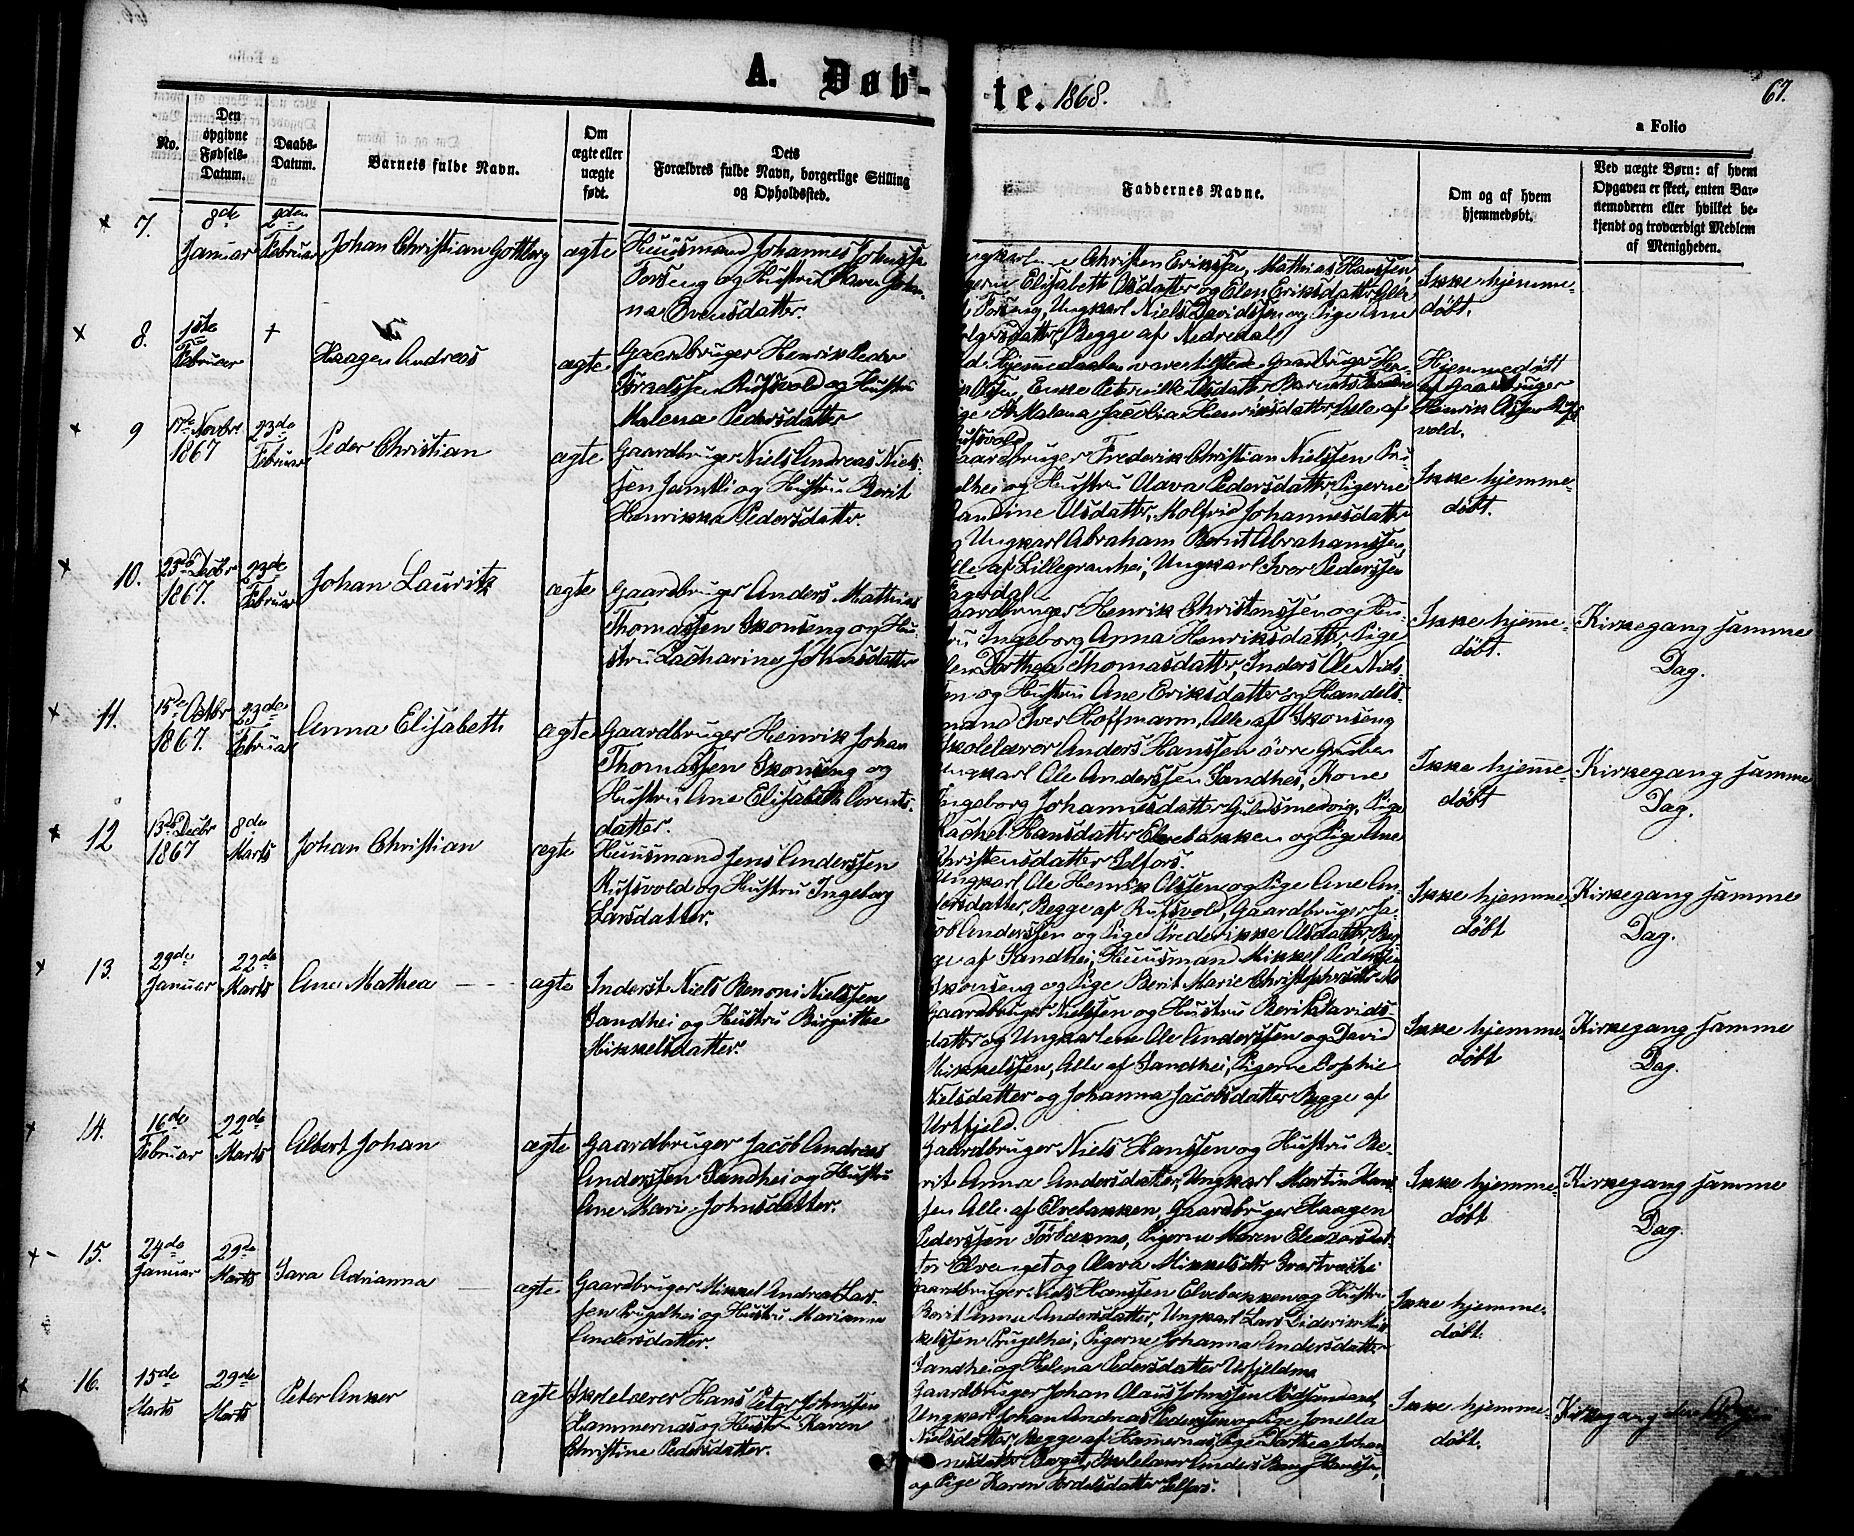 A. Døb-
te. 1868.
67.
a Folio
No.
Den opgivne Fødsels-Datum.
Daabs-Datum.
Barnets fulde Navn.
Om ægte eller uægte født.
Dets Forældres fulde Navn, borgerlige Stilling og Opholdssted.
Faddernes Navne.
Om og af hvem hjemmedøbt.
Ved uægte Børn: af hvem Opgaven er skeet, enten Barnemoderen eller hvilket bekjendt og troværdigt Medlem af Menigheden.
7.
8de Januar
2den Februar
Johan Christian Gottberg
ægte
Huusmand Johannes Johnssen
Forseng og Hustru Maren Johan-
na Evensdatter.
Christen Erikssen, Mathias Hanssen,
Elisabeth Olsdatter og Elen Eriksdatter Alle
Forseng, Ungkarl Niels Davidssen og Pige Ane
Begge af Nedredal
Ikke hjemme-
døbt.
8.
1ste Februar
+
Haagen Andreas
ægte
Gaardbruger Henrik Peder
Rufsvold og Hustru
Malena Pedersdatter
Hjemmedaaben vare tilstede Gaardbruger Hen-
rik Olsen, Enke Peternille Olsdatter Barnets
Pige Malena Jacobia Henriksdatter Alle af
Rufsvold
Hjemmedøbt
af Gaardbruger
Henrik Olssen Rufs-
vold.
9
17de Novbr 1867
23de Februar
Peder Christian
ægte
Gaardbruger Niels Andreas Niels-
sen Jamtli og Hustru Berit
Henrikka Pedersdatter.
Gaardbruger Frederik Christian Nielssen
og Hustru Olava Pedersdatter, Pigerne
Olsdatter, Molfrid Johannesdatter
og Ungkarl Abraham Bernt Abrahamssen
Alle af Lillegranhei, Ungkarl Iver Pederssen
Fagerdal
Ikke hjemme-
døbt.
10.
23de Decbr 1867.
23de Februar
Johan Lauritz
ægte
Gaardbruger Anders Mathias
Thomassen Skonseng og Hu-
stru Zacharine Johnsdatter
Gaardbruger Henrik Christenssen og Hu-
stru Ingeborg Anna Henriksdatter, Pige
Elen Dorthea Thomasdatter, Inders Ole Niels-
sen og Hustru Ane Eriksdatter og Handels-
mand Iver Hoffmann, Alle af Skonseng
Ikke hjemme-
døbt.
Kirkegang samme
Dag.
11.
15de Octbr 1867.
23de Februar
Anna Elisabeth
ægte
Gaardbruger Henrik Johan
Thomassen Skonseng og
Hustru Ane Elisabeth Arents-
datter.
Skolelærer Anders Hanssen øvre Gruben
Ungkarl Ole Anderssen Sandhei, Kone
Ingeborg Johannesdatter Guldsmedvig, Pige
Rachel Hansdatter Elvebakken og Pige Ane
Christensdatter Selfors.
Ikke hjemme-
døbt
Kirkegang samme
Dag.
12
13de Decbr 1867
8de Marts
Johan Christian
ægte
Huusmand Jens Anderssen
Rufsvold og Hustru Ingeborg
Larsdatter.
Ungkarl Ole Henrik Olssen og Pige Ane An-
dersdatter, Begge af Rufsvold, Gaardbruger Ja-
cob Anderssen og Pige Frederikke Olsdatter, Beg-
ge af Sandhei, Huusman Mikkel Pederssen
Skonseng og Pige Berit Marie
Ikke hjemme-
døbt
Kirkegang samme
Dag.
13.
29de Januar
22de Marts
Ane Mathea
ægte
Inderst Niels Benoni Nielssen
Sandhei og Hustru Birgitte
Mikkelsdatter.
Gaardbruger Nielssen og Hustru Berit Davids-
datter og Ungkarlene Ole Anderssen og David
Mikkelssen, Alle af Sandhei, Pigerne Sophie
Nielsdatter og Johanna Jacobsdatter Begge af
Urtfjeld.
Ikke hjemme-
døbt
Kirkegang samme
Dag.
14.
16de Februar
22de Marts
Albert Johan
ægte
Gaardbruger Jacob Andreas
Anderssen Sandhei og Hustru
Ane Marie Johnsdatter.
Gaardbruger Niels Hanssen og Hustru Be-
rit Anna Andersdatter, Ungkarl Martin Hans-
sen Alle af Elvebakken, Gaardbruger Haagen
Pederssen Pigerne Maren Eleasarsdat-
ter og Olava Mikkelsdtr Svartvashei
Ikke hjemme-
døbt
Kirkegang samme
Dag.
15.
24de Januar
29de Marts
Sara Adrianna
ægte
Gaardbruger Mikkel Andreas Lars-
sen Prugelhei og Hustru Marianna
Andersdatter.
Gaardbruger Niels Hanssen Elvebakken og Hustru
Berit Anna Andersdatter, Ungkarl Lars Diderik Mik-
kelssen Prugelhei, Pigerne Johanna Andersdatter
Sandhei og Helena Pedersdatter Urtfjeldmo
Ikke hjemme-
døbt.
16.
15de Marts
29de Marts
Peter Anker
ægte
Skolelærer Hans Peter Johnssen
Hammernæs og Hustru Karen
Christine Pedersdatter.
Gaardbruger Johan Olaus Johnssen
Ungkarl Johan Andreas Pederssen og Pige Jonella
Nielsdatter, Begge af Hammernæs, Pige Dorthea Johan-
nesdatter Skolelærer Anders Hanssen,
og Pige Karen Selfors.
Ikke hjemme-
døbt.
Kirkegang